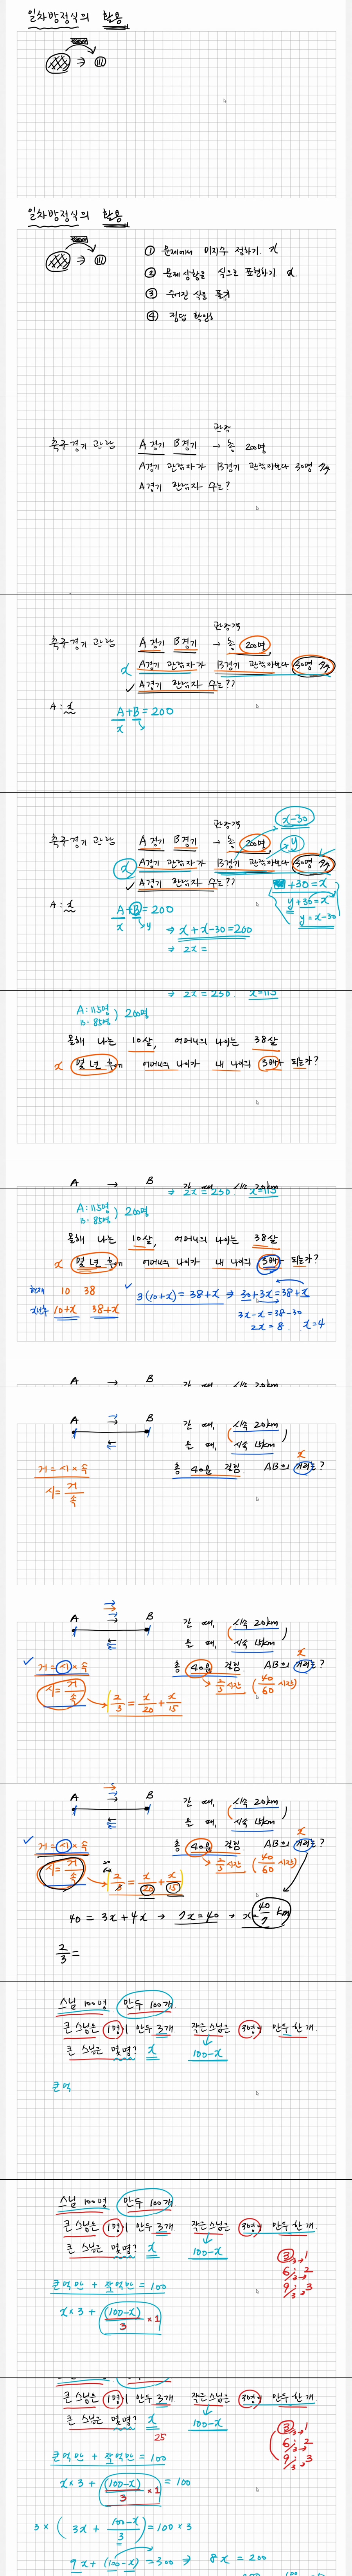 일차방정식의 활용
일차방정식의 활용
① 문제에서 미지수 정하기. x
② 문제 상황을 식으로 표현하기 x.
③ 주어진 식을 풀기
④ 정답 확인
축구경기 관람 A경기 B경기 → 총 200명
관중
A경기 관람자가 B경기 관람자보다 30명
A경기 관람자 수는?
관중객
축구경기 관람 A경기 B경기 → 총 200명
x A경기 관람자가 B경기 관람자보다 30명
✓ A경기 관람자 수는??
A : x A+B = 200
x
관중객 x-30
축구경기 관람 A경기 B경기 → 총 200명 y
x A경기 관람자가 B경기 관람자보다 30명
✓ A경기 관람자 수는?? +30=x
A : x A+B = 200 y+30=x
x y y=x-30
⇒ x+x-30=200
⇒ 2x=
⇒ 2x=230. x=115
A:115명
B:85명 ) 200명
올해 나는 10살, 어머니의 나이는 38살
x 몇 년 후에 어머니의 나이가 내 나이의 3배가 되는가?
A → B
⇒ 2x=230 x=115
A:115명
B:85명 ) 200명
올해 나는 10살, 어머니의 나이는 38살
x 몇 년 후에 어머니의 나이가 내 나이의 3배가 되는가?
현재 10 38 ✓ 3(10+x) = 38+x ⇒ 30+3x=38+x
x년후 10+x 38+x 3x-x=38-30
2x=8. x=4
A → B
A → B 간 때, 시속 20km
온 때, 시속 15km
거=시×속 총 40분 걸림. AB의 거리는? x
시=거/속
A → B 간 때, 시속 20km
온 때, 시속 15km
✓ 거=시×속 총 40분 걸림. AB의 거리는? x
시=거/속 → 2/3 = x/20 + x/15 → 2/3시간 (40/60 시간)
A → B 간 때, 시속 20km
온 때, 시속 15km
✓ 거=시×속 총 40분 걸림. AB의 거리는? x
시=거/속 → 2/3 = x/20 + x/15 → 2/3시간 (40/60 시간)
40 = 3x+4x → 7x=40 → x=40/7 km
2/3 =
스님 100명 만두 100개
큰 스님은 1명이 만두 3개 작은 스님은 3명이 만두 한 개
큰 스님은 몇명? x 100-x
큰먹
스님 100명 만두 100개
큰 스님은 1명이 만두 3개 작은 스님은 3명이 만두 한 개
큰 스님은 몇명? x 100-x
큰먹만 + 작먹만 = 100
x×3 + (100-x)/3 ×1
3 → 1
6 → 2
9 → 3
큰 스님은 1명이 만두 3개 작은 스님은 3명이 만두 한 개
큰 스님은 몇명? x 100-x
25
큰먹만 + 작먹만 = 100
x×3 + (100-x)/3 ×1 = 100
3 → 1
6 → 2
9 → 3
3 × ( 3x + 100-x/3 ) = 100 ×3
9x + (100-x) = 300 ⇒ 8x = 200